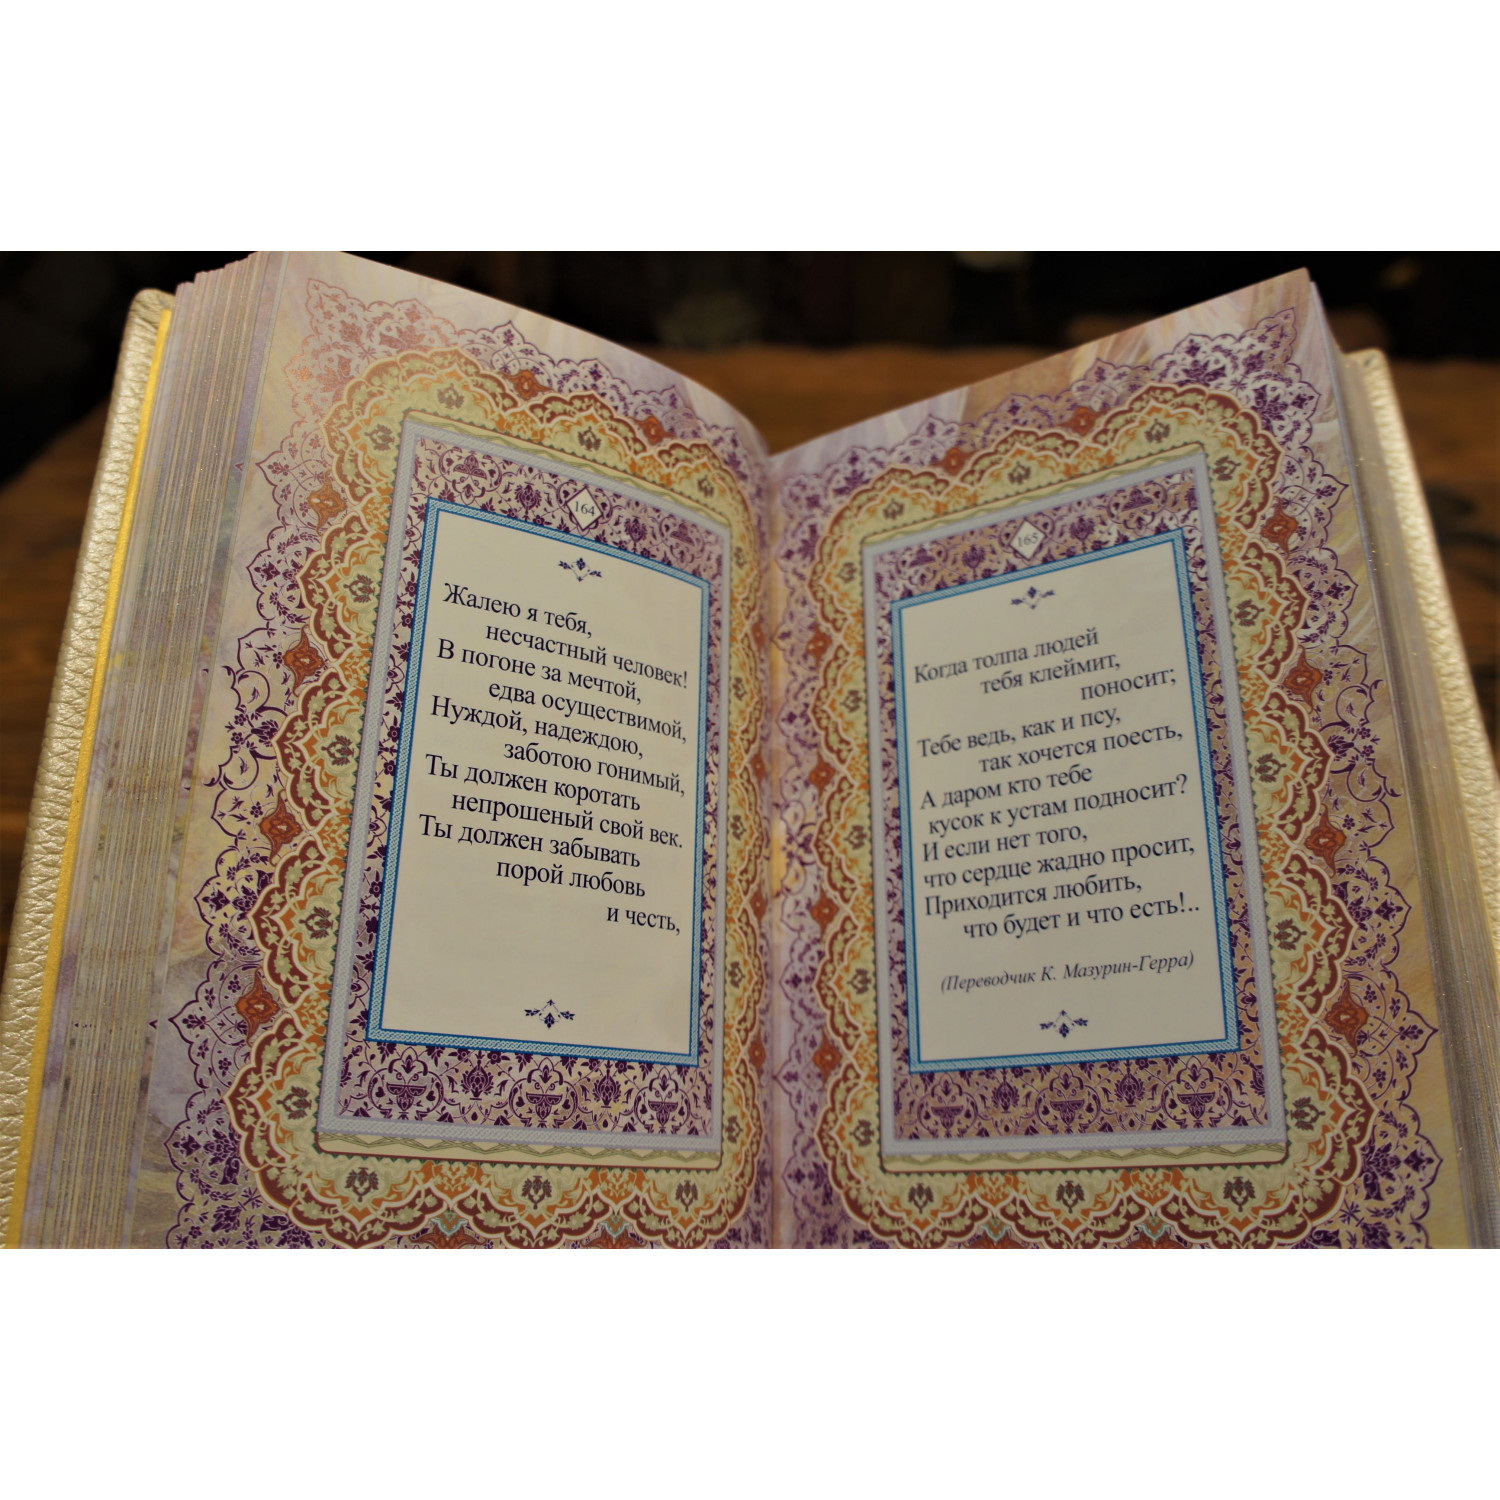 164
Жалею я тебя,
несчастный человек!
В погоне за мечтой,
едва осуществимой,
Нуждой, надеждою,
заботою гонимый,
Ты должен коротать
непрошеный свой век.
Ты должен забывать
порой любовь
и честь,
165
Когда толпа людей
тебя клеймит,
поносит;
Тебе ведь, как и псу,
так хочется поесть,
А даром кто тебе
кусок к устам подносит?
И если нет того,
что сердце жадно просит,
Приходится любить,
что будет и что есть!..
(Переводчик К. Мазурин-Герра)